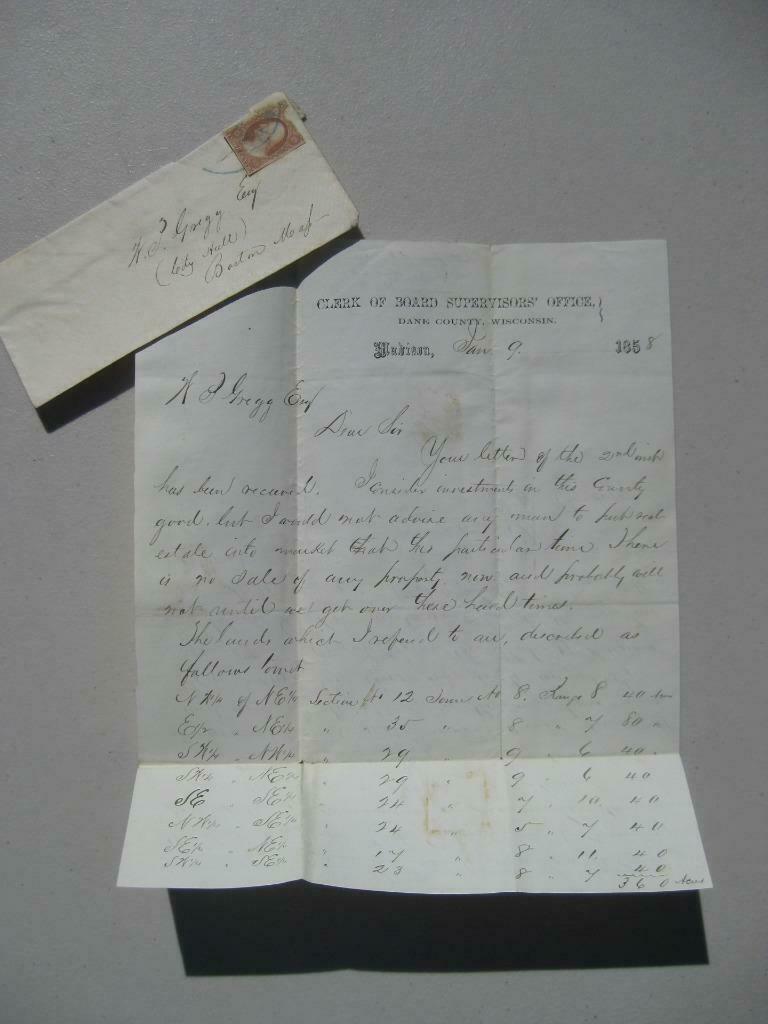 W. P. Gregg Esq
(City Hall)
Boston Mass
CLERK OF BOARD SUPERVISORS' OFFICE,
DANE COUNTY, WISCONSIN.
Madison, Jan 9. 1858
W P Gregg Esq
Dear Sir
Your letter of the 2nd inst
has been received. I consider investments in this County
good. but I would not advise any man to put real
estate into market at this particular time There
is no sale of any property now and probably will
not until we get over these hard times.
The lands which I refered to are, described as
follows towit
NW¼ of NE¼ Section No 12 Town No 8. Range 8 40 acres
E½ " NE¼ " " 35 " 8 " 7 80 "
SW¼ " NW¼ " 29 " 9 " 6 40 "
SW¼ " NE¼ " 29 " 9 " 6 40
SE " SE¼ " 24 " 7 " 10 40
NW¼ " SE¼ " 24 " 5 " 7 40
SE¼ " NE¼ " 17 " 8 " 11 40
SW¼ " SE¼ " 23 " 8 " 7 40
360 Acres